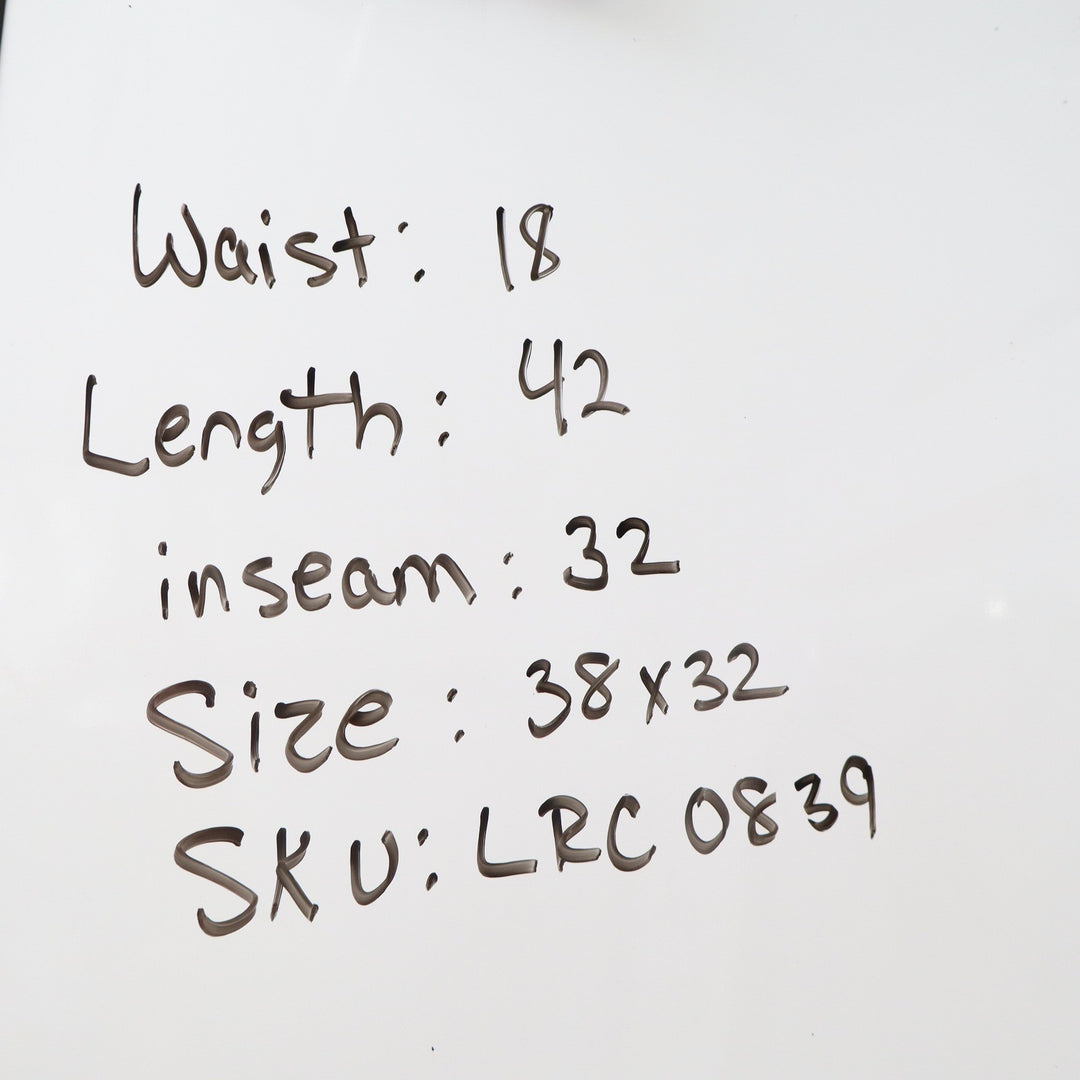 Waist: 18
Length: 42
inseam: 32
Size: 38x32
SKU: LRC 0839